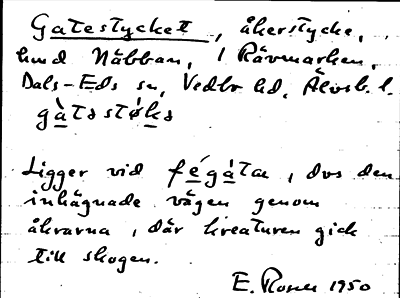 Gatestycket, åkerstycke,
hmd Näbban, i Rävmarken,
Dals-Eds sn, Vedbo hd, Älvsb. l.
gàtəstøkə
Ligger vid fégàta, dvs den
inhägnade vägen genom
åkrarna, där kreaturen gick
till skogen.
E. Rosen 1950